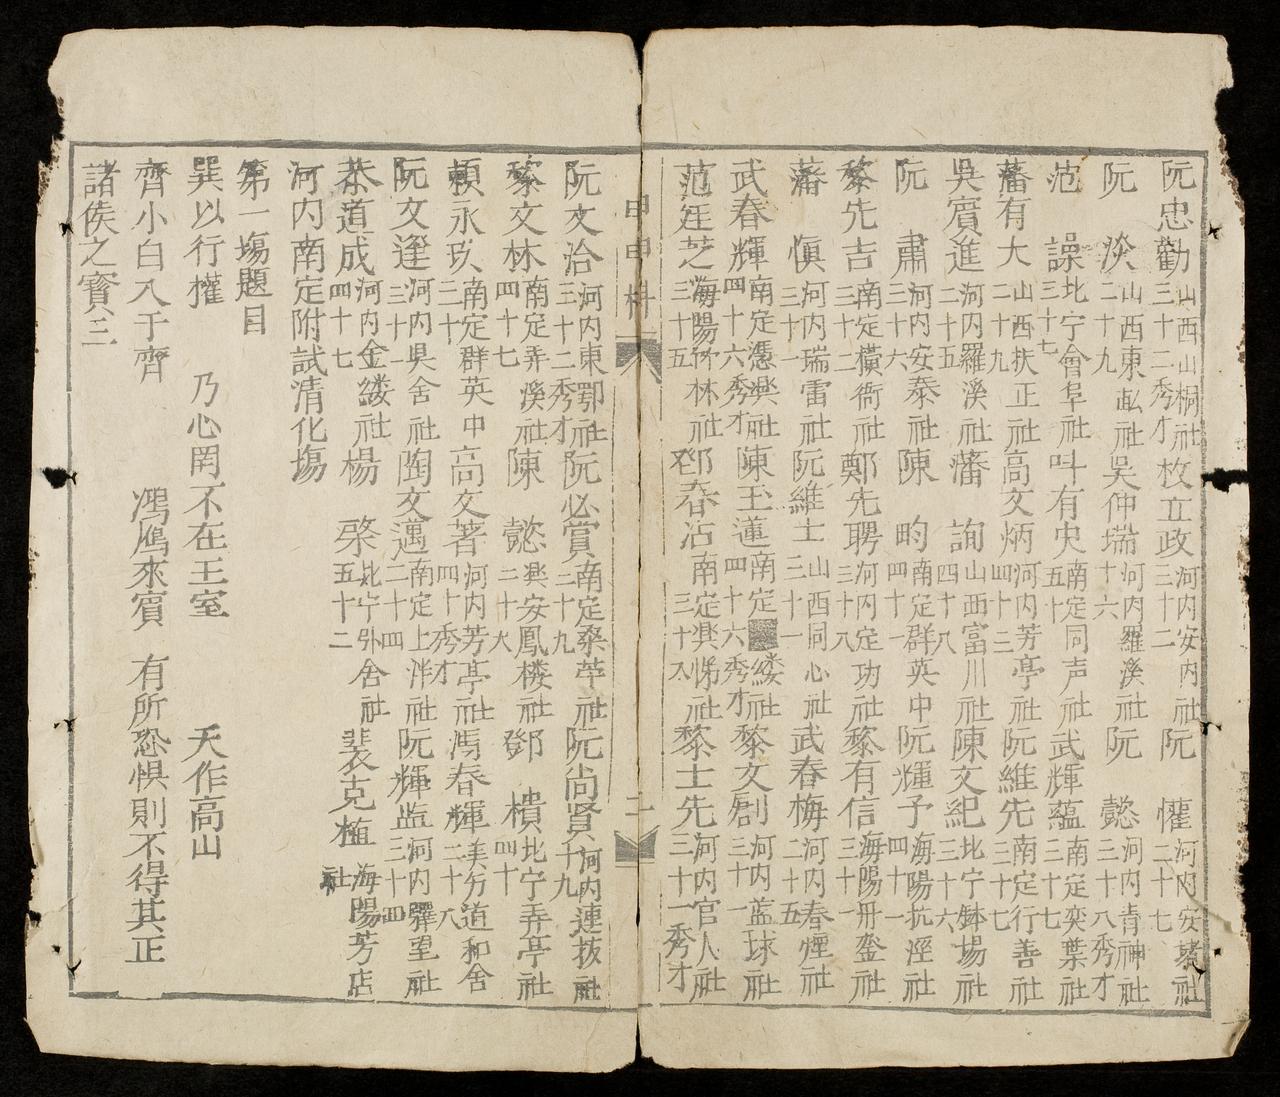 阮忠勸山西山桐社三十二秀才枚立政河内安内社三十二阮懽河内安堵社二十七
阮淡山西東畆社二十九吳伸瑞河内羅溪社十六阮懿河内青神社三十八秀才
范譟北宁會阜社三十七叫有史南定同声社五十武輝蘊南定奕葉社二十七
藩有大山西扶正社二十九高文炳河内芳亭社四十三阮維先南定行善社三十七
吳賓進河内羅溪社二十五藩詢山西富川社四十八陳文紀北宁鉢場社三十六
阮肅河内安泰社三十六陳畇南定群英中四十一阮輝予海陽抗涇社四十一
黎先吉南定橫衙社三十二鄭先聘河内定功社三十八黎有信海陽冊鑾社三十一
藩愼河内瑞雷社三十一阮維士山西同心社三十一武春梅河内春煙社二十五
武春輝南定憑興社四十六秀才陳玉蓮南定 縷社四十六秀才黎文創河内藍球社三十一
范廷芝海陽竹林社三十五鄧春沾南定興悌社三十八黎士先河内官人社三十一秀才
甲申科 二
阮文洽河内東鄂社三十二秀才阮必賞南定桑莘社二十九阮尚賢河内連拔社十九
黎文林南定弄溪社四十七陳懿興安鳳楼社二十八鄧樻北宁弄亭社四十
賴永玖南定群英中二十高文著河内芳亭社四十秀才馮春輝美夯道和舍二十八
阮文運河内具舍社三十一陶文邁南定上泮社二十四阮輝監河内驛望社三十四
恭道成河内金縷社四十七楊棨北宁外舍社五十二裴克植海陽芳店社
河内南定附試清化場
第一場題目
巽以行權 乃心罔不在王室 天作高山
齊小白入于齊 鴻鴈來賓 有所恐惧則不得其正
諸侯之寳三